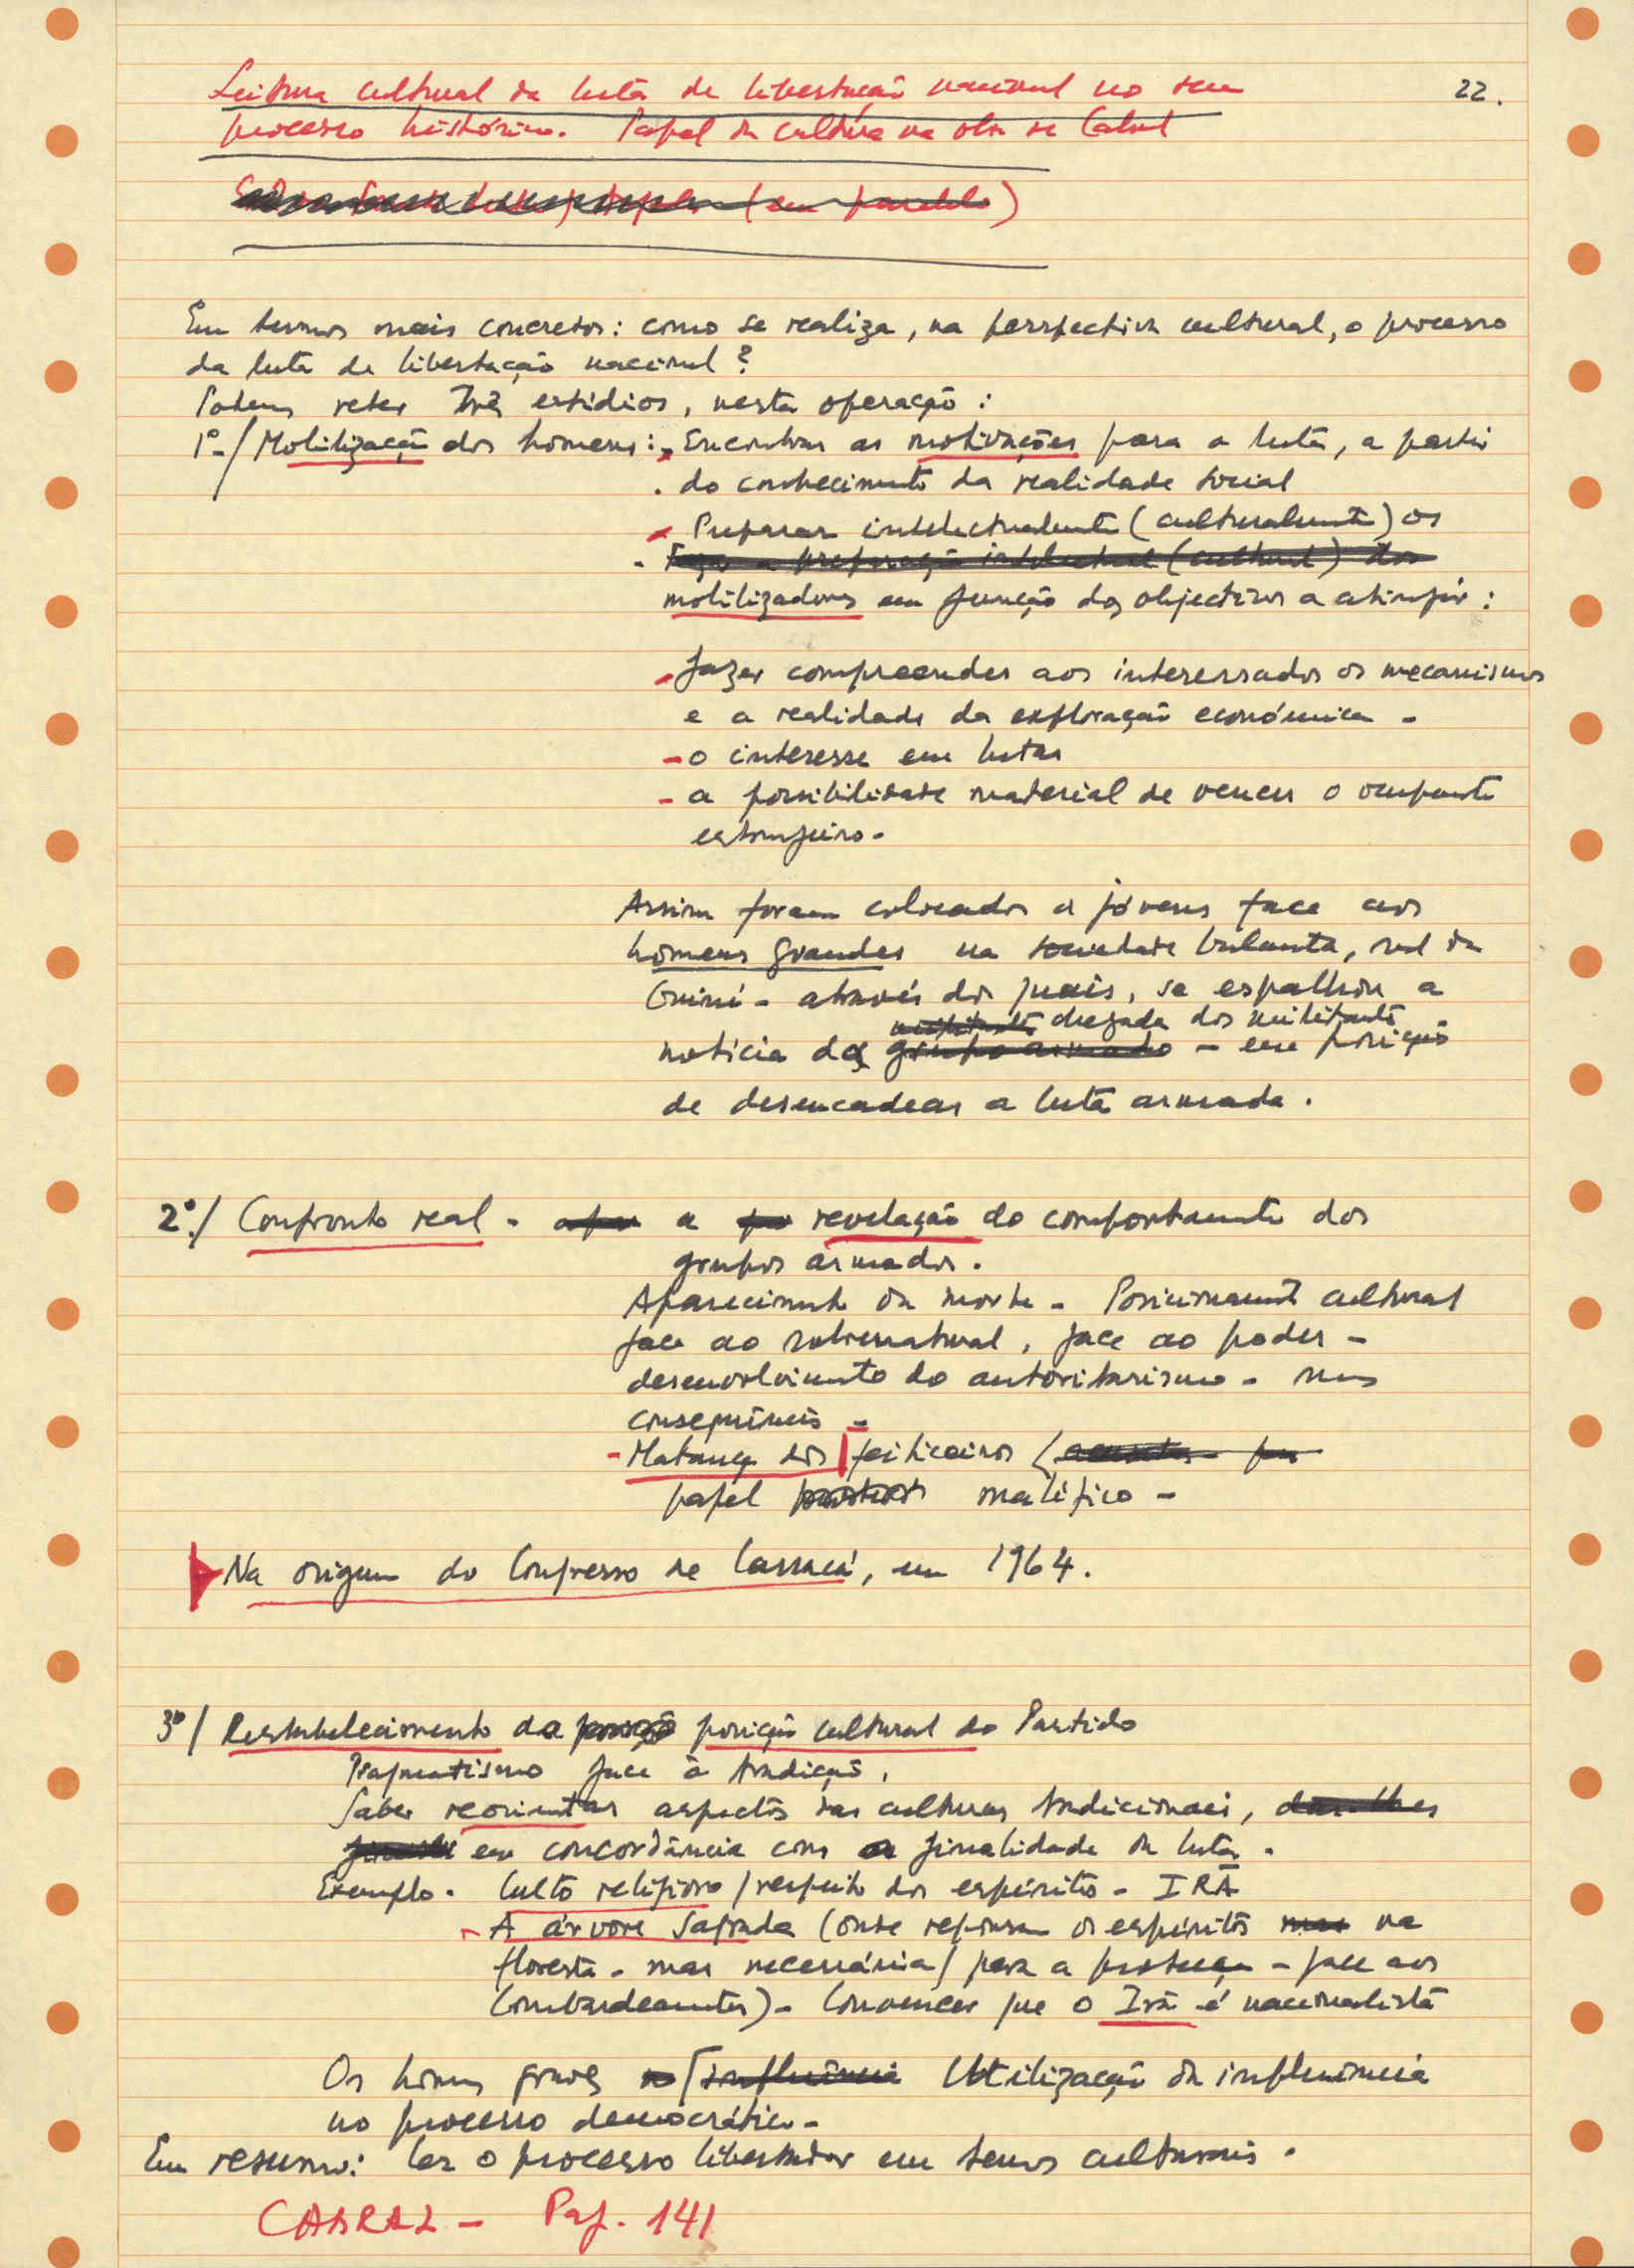 22.
Leitura cultural da luta de libertação nacional no seu
processo histórico. Papel da cultura na obra de Cabral
(em paralelo)
Em termos mais concretos: como se realiza, na perspectiva cultural, o processo
da luta de libertação nacional?
Podemos reter três estádios, nesta operação:
1º-/ Mobilização dos homens: - Encontrar as motivações para a luta, a partir
. do conhecimento da realidade social
- Preparar intelectualmente (culturalmente) os
- Fazer a preparação intelectual (cultural) dos
mobilizadores em função dos objectivos a atingir:
- fazer compreender aos interessados os mecanismos
e a realidade da exploração económica -
- o interesse em lutar
- a possibilidade material de vencer o ocupante
estrangeiro.
Assim foram colocados os jóvens face aos
homens grandes na sociedade balanta, sul da
Guiné - através dos quais, se espalhou a
militante chegada dos militantes
notícia da grupo armado - em posição
de desencadear a luta armada.
2º/ Confronto real - a revelação do comportamento dos
grupos armados.
Aparecimento da morte - Posicionamento cultural
face ao sobrenatural, face ao poder -
desenvolvimento do autoritarismo - suas
consequências -
- Matança dos feiticeiros (
papel maléfico -
Na origem do Congresso de Cassacá, em 1964.
3º/ Restabelecimento da posição posição cultural do Partido
Pragmatismo face à tradição,
Saber reorientar aspectos das culturas tradicionais, dar-lhes
em concordância com a finalidade da luta.
Exemplo. Culto religioso / respeito dos espíritos - IRÃ
- A árvore Sagrada (onde repousam os espíritos mas na
floresta - mas necessária / para a protecção - face aos
bombardeamentos) - Convencer que o Irã é nacionalista
Os homens grandes influência Utilização da influência
no processo democrático -
Em resumo: ler o processo libertador em termos culturais.
CABRAL - Pag. 141